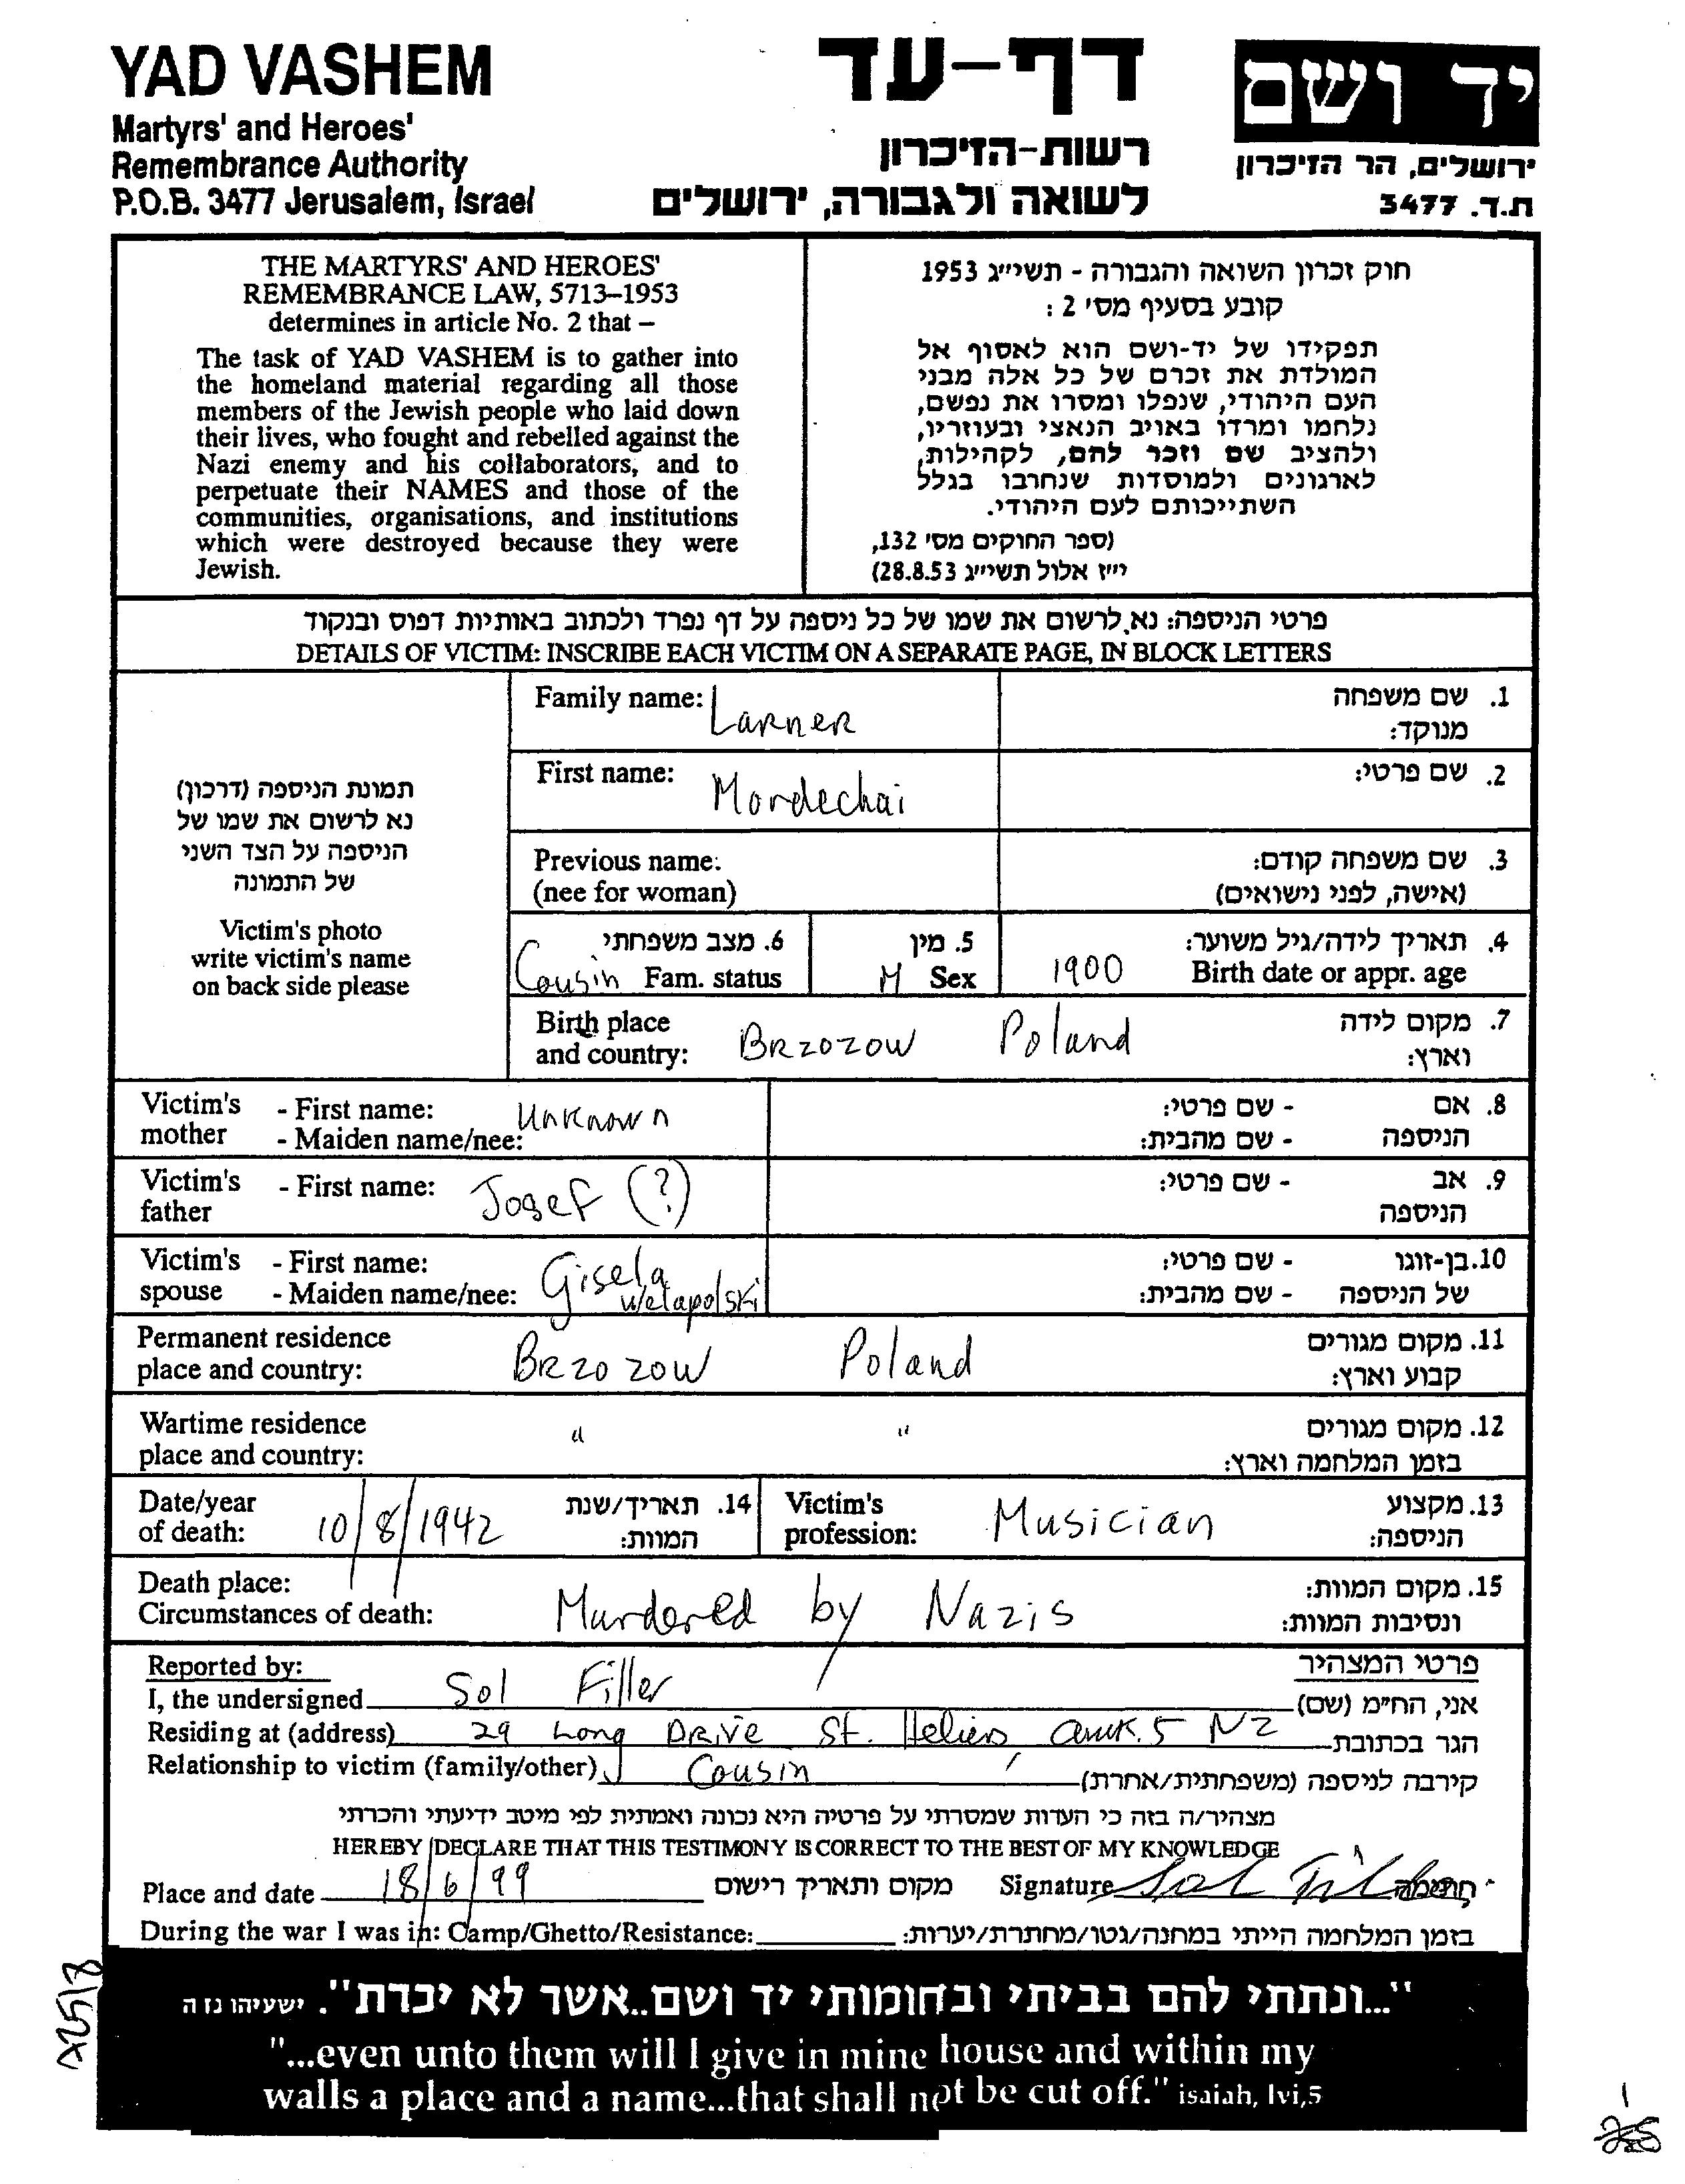 YAD VASHEM
Martyrs' and Heroes'
Remembrance Authority
P.O.B. 3477 Jerusalem, Israel
דף-עד
רשות-הזיכרון
לשואה ולגבורה, ירושלים
יד ושם
ירושלים, הר הזיכרון
ת.ד. 3477
THE MARTYRS' AND HEROES'
REMEMBRANCE LAW, 5713–1953
determines in article No. 2 that –
The task of YAD VASHEM is to gather into
the homeland material regarding all those
members of the Jewish people who laid down
their lives, who fought and rebelled against the
Nazi enemy and his collaborators, and to
perpetuate their NAMES and those of the
communities, organisations, and institutions
which were destroyed because they were
Jewish.
חוק זכרון השואה והגבורה - תשי״ג 1953
קובע בסעיף מס׳ 2 :
תפקידו של יד-ושם הוא לאסוף אל
המולדת את זכרם של כל אלה מבני
העם היהודי, שנפלו ומסרו את נפשם,
נלחמו ומרדו באויב הנאצי ובעוזריו,
ולהציב שם וזכר להם, לקהילות,
לארגונים ולמוסדות שנחרבו בגלל
השתייכותם לעם היהודי.
(ספר החוקים מס׳ 132,
י״ז אלול תשי״ג 28.8.53)
פרטי הניספה: נא לרשום את שמו של כל ניספה על דף נפרד ולכתוב באותיות דפוס ובנקוד
DETAILS OF VICTIM: INSCRIBE EACH VICTIM ON A SEPARATE PAGE, IN BLOCK LETTERS
תמונת הניספה (דרכון)
נא לרשום את שמו של
הניספה על הצד השני
של התמונה
Victim's photo
write victim's name
on back side please
Family name: Larner
1. שם משפחה
מנוקד:
First name: Mordechai
2. שם פרטי:
Previous name:
(nee for woman)
3. שם משפחה קודם:
(אישה, לפני נישואים)
6. מצב משפחתי
Cousin Fam. status
5. מין
M Sex
4. תאריך לידה/גיל משוער:
1900 Birth date or appr. age
Birth place
and country: BRZOZOW Poland
7. מקום לידה
וארץ:
Victim's - First name: Unknown
mother - Maiden name/nee:
8. אם - שם פרטי:
הניספה - שם מהבית:
Victim's - First name: Josef (?)
father
9. אב - שם פרטי:
הניספה
Victim's - First name: Gisela
spouse - Maiden name/nee: Welapolski
10. בן-זוגו - שם פרטי:
של הניספה - שם מהבית:
Permanent residence
place and country: BRZOZOW Poland
11. מקום מגורים
קבוע וארץ:
Wartime residence " "
place and country:
12. מקום מגורים
בזמן המלחמה וארץ:
Date/year
of death: 10/8/1942
14. תאריך/שנת
המוות:
Victim's
profession: Musician
13. מקצוע
הניספה:
Death place:
Circumstances of death: Murdered by Nazis
15. מקום המוות:
ונסיבות המוות:
Reported by:
פרטי המצהיר
I, the undersigned Sol Filler אני, הח״מ (שם)
Residing at (address) 29 Long Drive St. Heliers Auck. 5 NZ הגר בכתובת
Relationship to victim (family/other) Cousin קירבה לניספה (משפחתית/אחרת)
מצהיר/ה בזה כי העדות שמסרתי על פרטיה היא נכונה ואמתית לפי מיטב ידיעתי והכרתי
HEREBY DECLARE THAT THIS TESTIMONY IS CORRECT TO THE BEST OF MY KNOWLEDGE
Place and date 18/6/99 מקום ותאריך רישום Signature Sol Filler חתימה
During the war I was in: Camp/Ghetto/Resistance: בזמן המלחמה הייתי במחנה/גטו/מחתרת/יערות:
"...ונתתי להם בביתי ובחומותי יד ושם..אשר לא יכרת". ישעיהו נו ה
"...even unto them will I give in mine house and within my
walls a place and a name...that shall not be cut off." isaiah, lvi,5